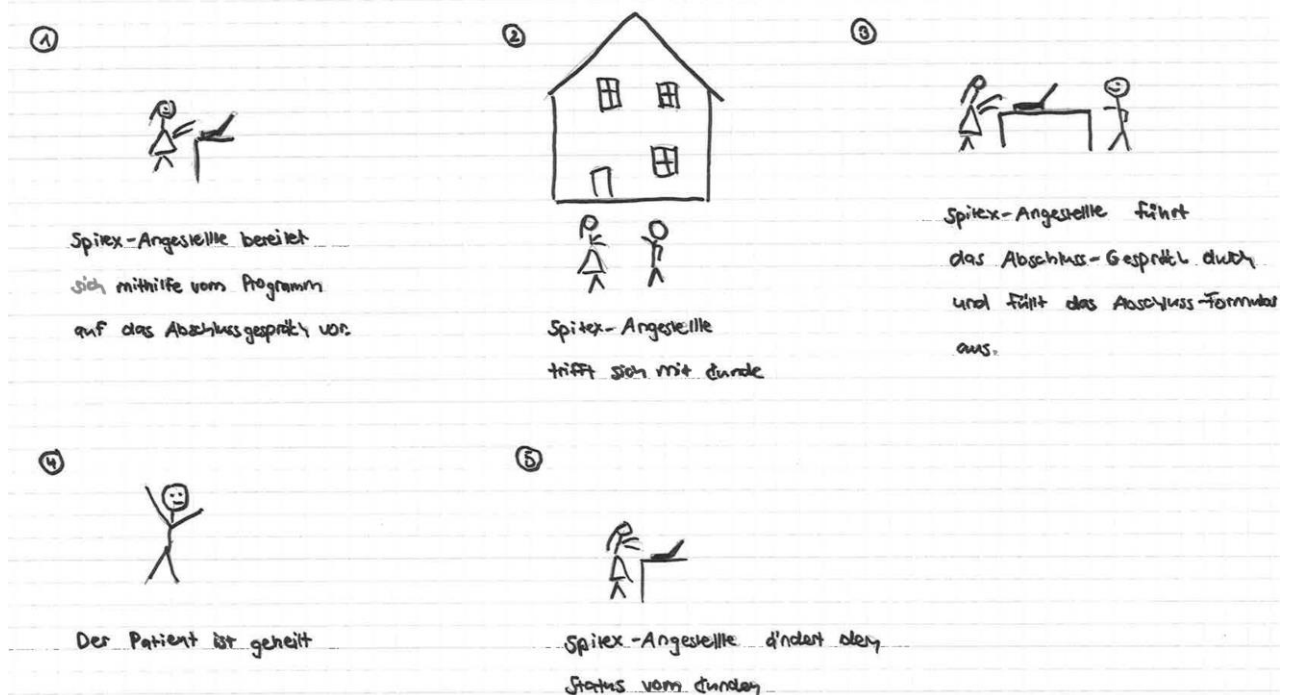 1
Spitex-Angestellte bereitet
sich mithilfe vom Programm
auf das Abschlussgespräch vor.
2
Spitex-Angestellte
trifft sich mit Kunde
3
Spitex-Angestelle führt
das Abschluss-Gespräch durch
und füllt das Abschluss-Formular
aus.
4
Der Patient ist geheilt
5
Spitex-Angestellte ändert den
Status vom Kunden